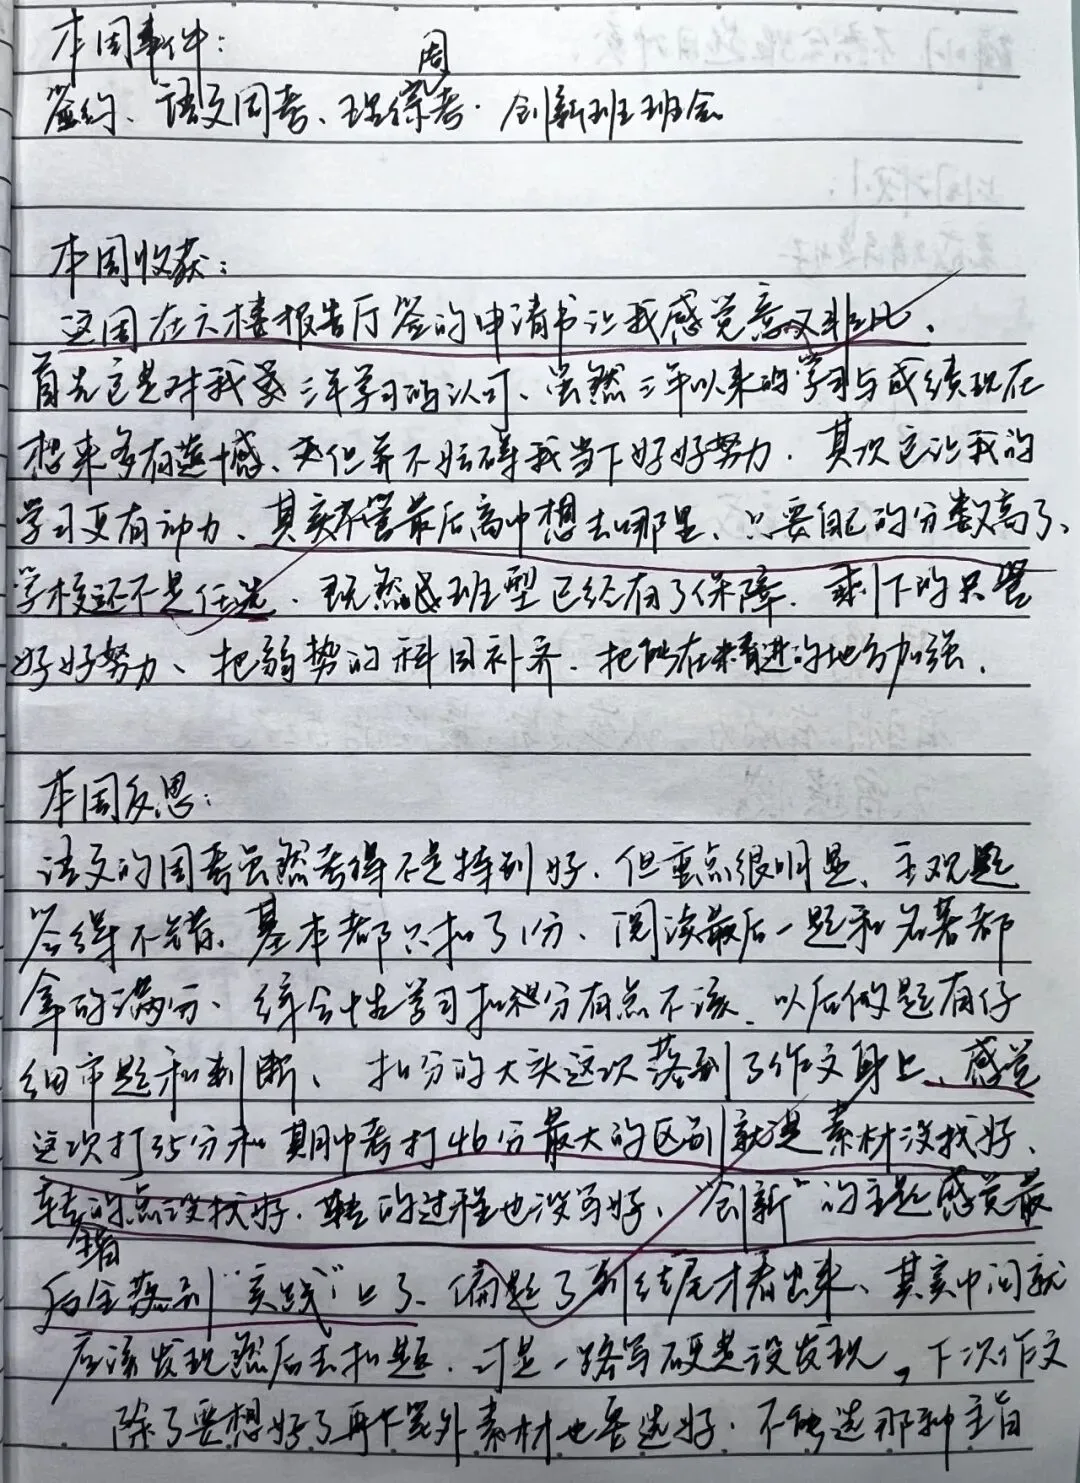 本周事件：
周
签约、语文周考、理综考、创新班班会
本周收获：
这周在六楼报告厅签的申请书让我感觉意义非凡，
首先它是对我三年学习的认可、虽然三年以来的学习与成绩现在
想来多有遗憾、但并不妨碍我当下好好努力．其次它让我的
学习更有动力、其实不管最后高中想去哪里、只要自己的分数高了、
学校还不是任选．既然班型已经有了保障．剩下的只管
好好努力、把弱势的科目补齐．把的地方加强．
本周反思：
语文的周考虽然考得不是特别好．但重点很明显、主观题
答得不错、基本都只扣了1分、阅读最后一题和名著都
拿的满分、综合性学习扣2分有点不该、以后做题有仔
细审题和判断、扣分的大头这次落到了作文身上、感觉
这次打35分和期中考打46分最大的区别就是素材没找好、
转的点没找好．转的过程也没写好、“创新”的主题感觉最
全篇
后全落到“实践”上了、偏题了到结尾才看出来、其实中间就
应该发现然后去扣题．可是一路写硬是没发现。下次作文
除了要想好了再下笔外素材也要选好．不能选那种主旨